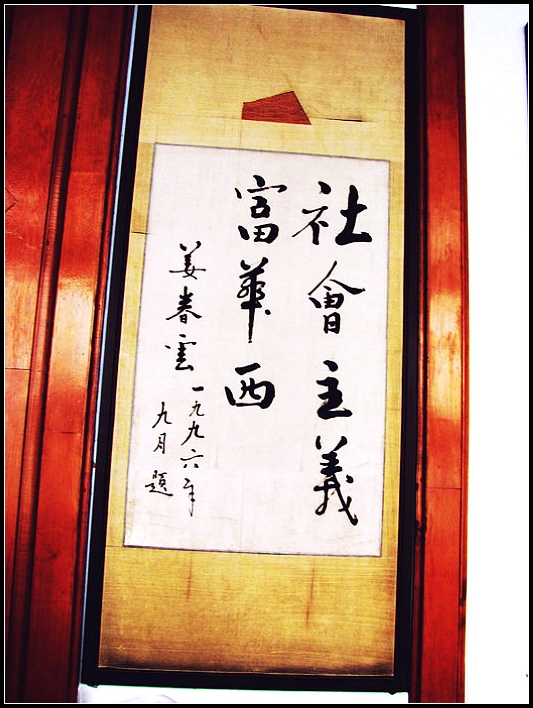 社會主義
富華西
姜春雲
一九九六年
九月題